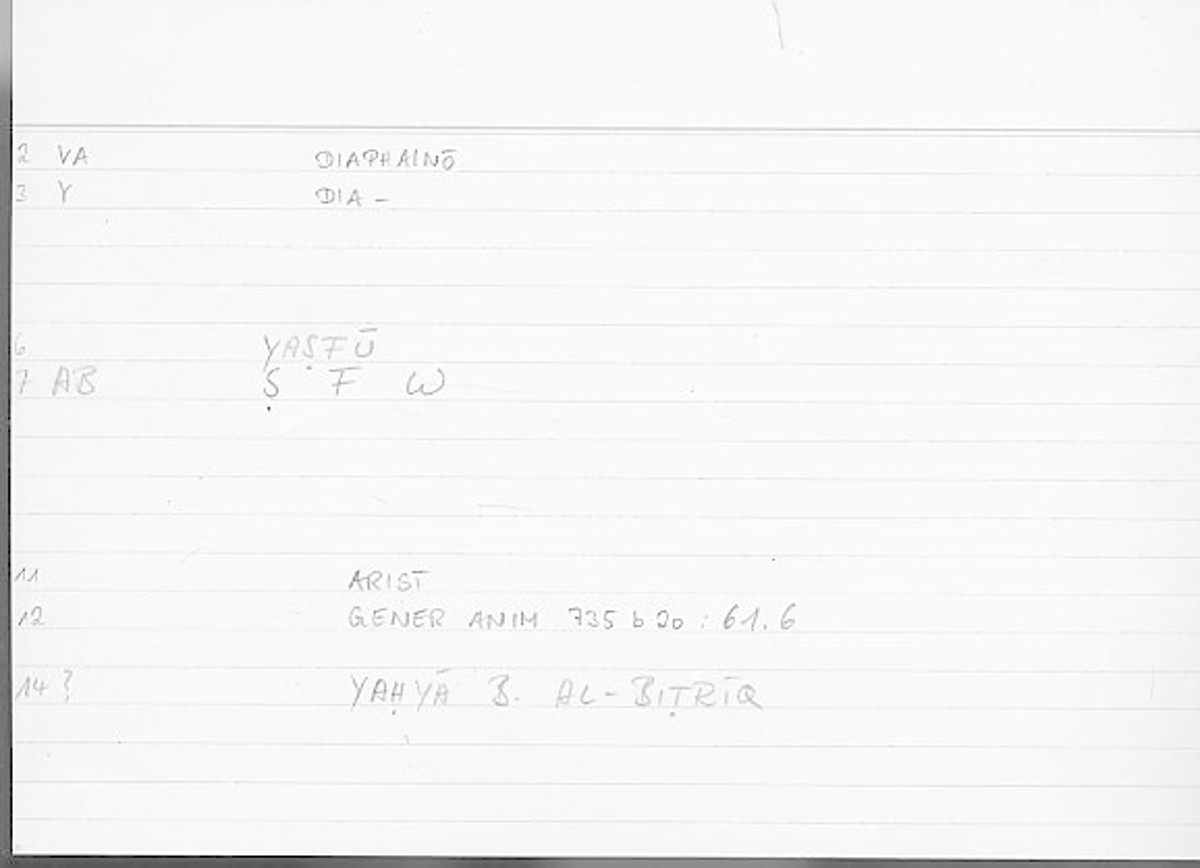 2 VA DIAPHAINŌ
3 Y DIA -
6 YAṢFŪ
7 AB Ṣ F W
11 ARIST
12 GENER ANIM 735 b 20 : 61.6
14 ? YAḤYĀ B. AL-BIṬRĪQ